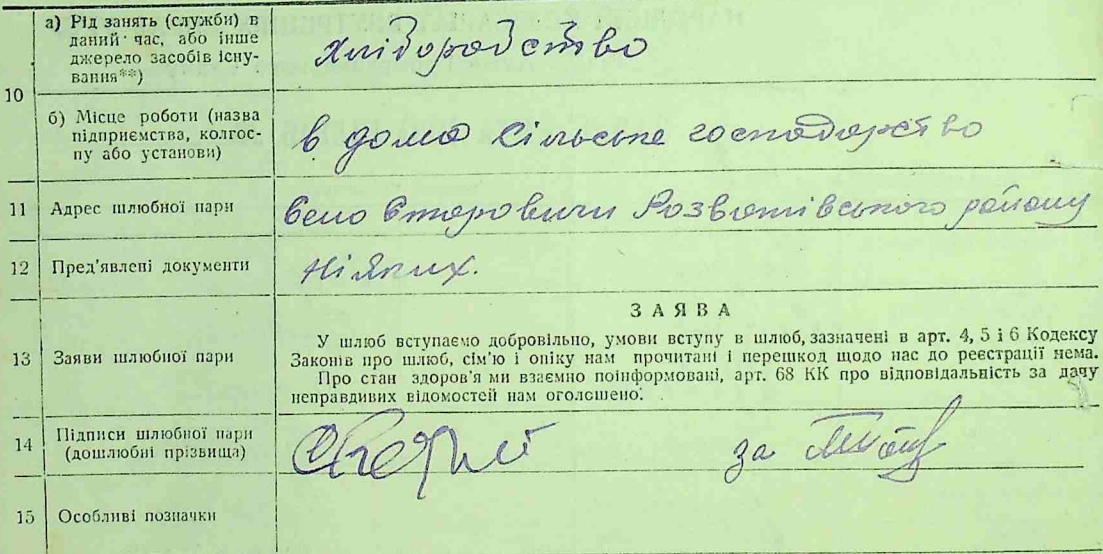 10
а) Рід занять (служби) в
даний час, або інше
джерело засобів існу-
вання**)
хліборобство
б) Місце роботи (назва
підприємства, колгос-
пу або установи)
в дома сільське господарство
11 Адрес шлюбної пари
село Старовичи Розважівського району
12 Пред'явлені документи
Ніяких.
13 Заяви шлюбної пари
ЗАЯВА
У шлюб вступаємо добровільно, умови вступу в шлюб, зазначені в арт. 4, 5 і 6 Кодексу
Законів про шлюб, сім'ю і опіку нам прочитані і перешкод щодо нас до реєстрації нема.
Про стан здоров'я ми взаємно поінформовані, арт. 68 КК про відповідальність за дачу
неправдивих відомостей нам оголошено.
14 Підписи шлюбної пари
(дошлюбні прізвища)
за
15 Особливі позначки